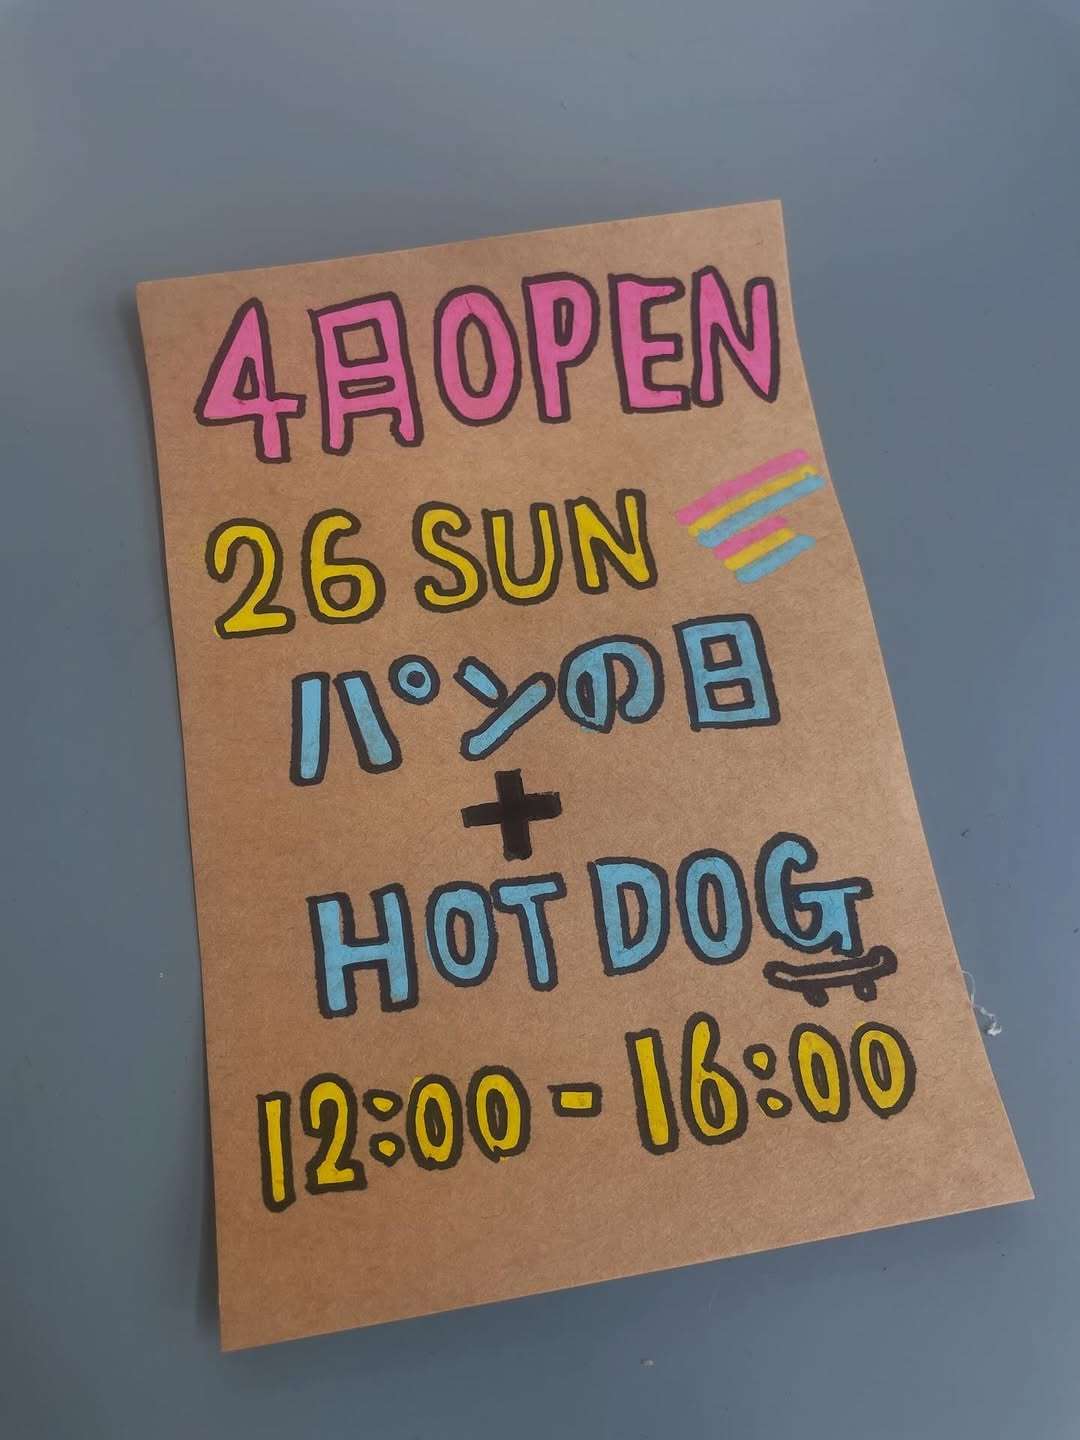 4月OPEN
26 SUN
パンの日
+
HOT DOG
12:00-16:00